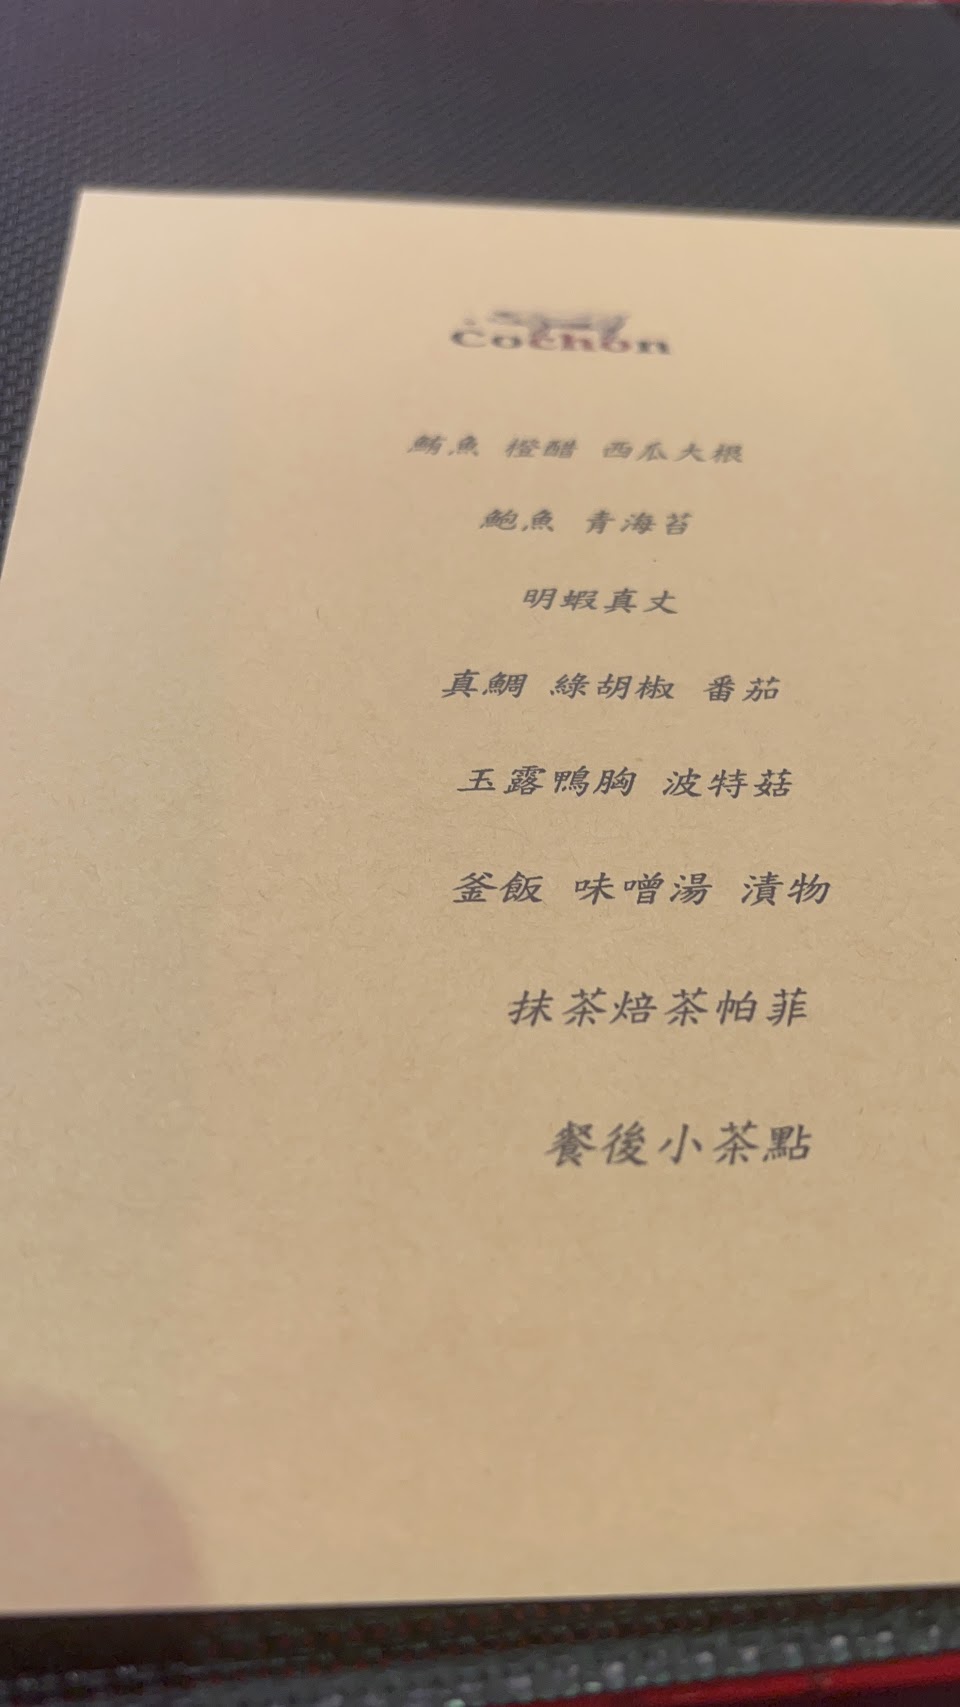 Cochon
鮪魚 橙醋 西瓜大根
鮑魚 青海苔
明蝦真丈
真鯛 綠胡椒 番茄
玉露鴨胸 波特菇
釜飯 味噌湯 漬物
抹茶焙茶帕菲
餐後小茶點